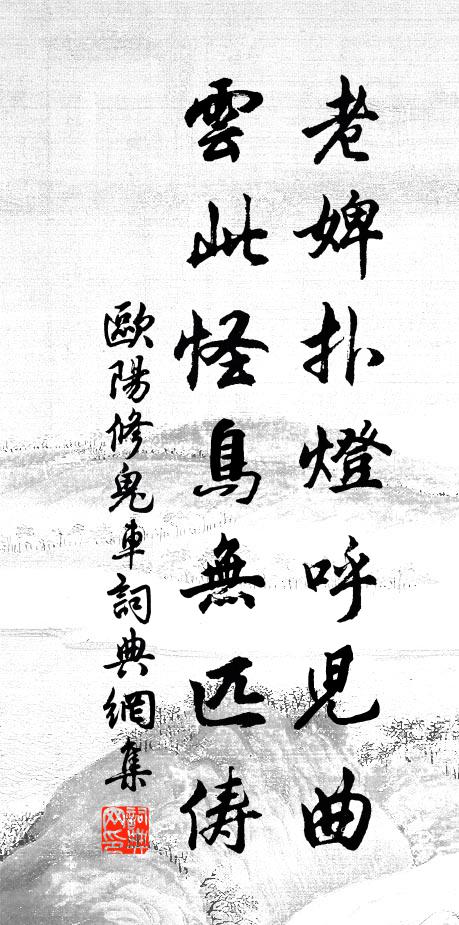 老婢扑燈呼兒曲
雲此怪鳥無匹儔
歐陽修鬼車詞典網集